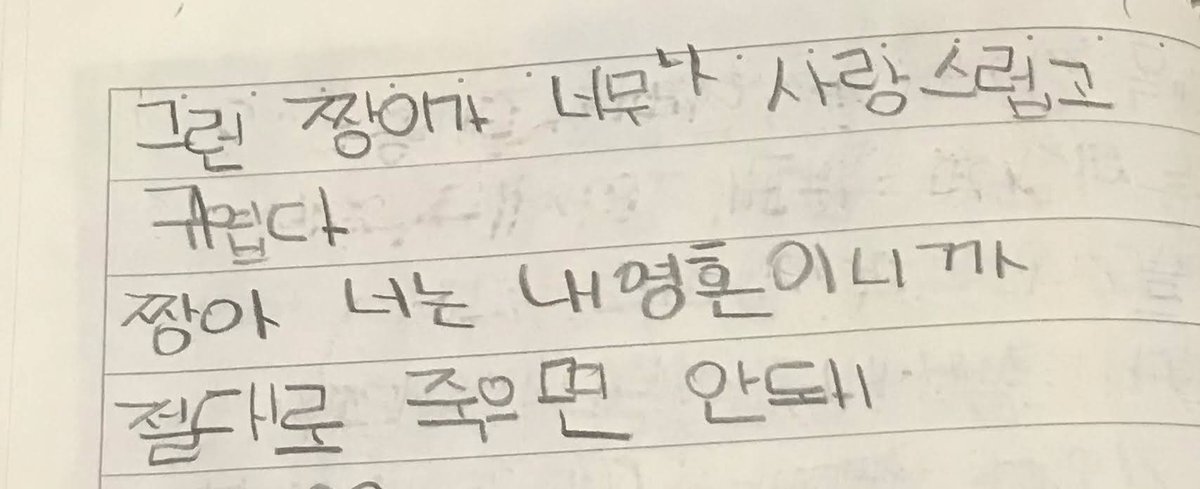 그런 짱아가 너무나 사랑스럽고
귀엽다
짱아 너는 내영혼이니까
절대로 죽으면 안돼